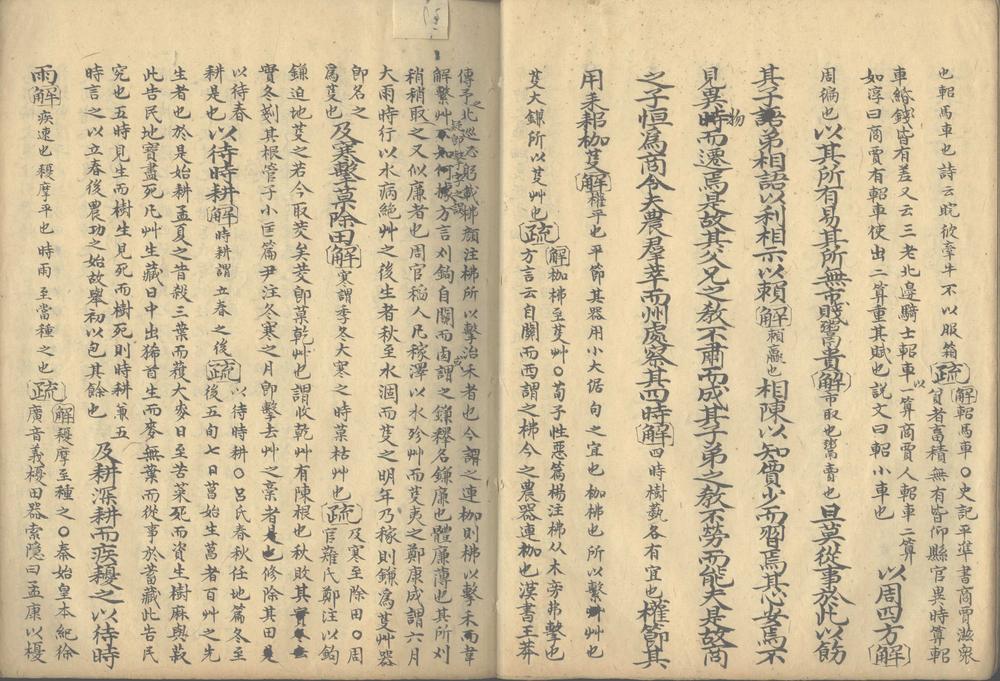 也軺馬車也詩云睆彼牽牛不以服箱疏解軺馬車○史記平準書商賈滋衆
貧者畜積無有皆仰縣官異時算軺
車緡錢皆有差又云三老北邊騎士軺車以算商賈人軺車二算
如淳曰商賈有軺車使出二算重其賦也説文曰軺小車也以周四方解
周徧也以其所有易其所無市賤鬻貴解市取也鬻賣也旦莫從事於此以飭
其子弟相語以利相示以賴解賴贏也相陳以知價少而習焉其心安焉不
見異物而遷焉是故其父兄之教不肅而成其子弟之教不勞而能夫是故商
之子恒為商令夫農羣萃而州處察其四時解四時樹蓺各有宜也權節其
用耒耜枷芟解權平也平節其器用小大倨句之宜也枷柫也所以擊艸也
芟大鎌所以芟艸也疏解枷柫至芟艸○荀子性惡篇楊注柫从木旁弗擊也
方言云自關而西謂之柫今之農器連枷也漢書王莽
傳予之北巡必躬載柫顏注柫所以擊治禾者也今謂之連枷則柫以擊禾而韋
解繫艸不知何據方言刈鉤自關而西或謂之鎌釋名鎌廉也體廉薄也其所刈
疑即芟字之誤
稍稍取之又似廉者也周官稻人凡稼澤以水殄艸而芟夷之鄭康成謂六月
大雨時行以水病絶艸之後生者秋至水涸而芟之明年乃稼則鎌為芟艸器
即名之
為芟也及寒擊菒除田解寒謂季冬大寒之時菒枯艸也疏及寒至除田○周
官薙氏鄭注以鉤
鎌迫地芟之若今取茭矣茭即菒乾艸也謂收乾艸有陳根也秋敗其
實冬剗其根管子小匡篇尹注冬寒之月即擊去艸之稾者是也修除其田
以待春
耕是也以待時耕解時耕謂立春之後疏以待時耕○呂氏春秋任地篇冬至
後五旬七日菖始生菖者百艸之先
生者也於是始耕孟夏之昔殺三葉而穫大麥日至苦菜死而資生樹麻與菽
此告民地寶盡死凡艸生藏日中出狶首生而麥無葉而從事於蓄藏此告民
究也五時見生而樹生見死而樹死則時耕兼五
時言之以立春後農功之始故舉初以包其餘也及耕深耕而疾耰之以待時
雨解疾速也耰摩平也時雨至當種之也疏解耰摩至種之○秦始皇本紀徐
廣音義櫌田器索隱曰孟康以櫌